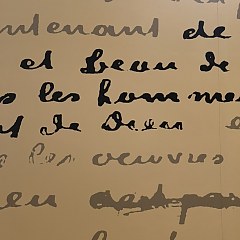 ntenant de
et beau de
s les hommes
t de Dieu
les oeuvres
eu